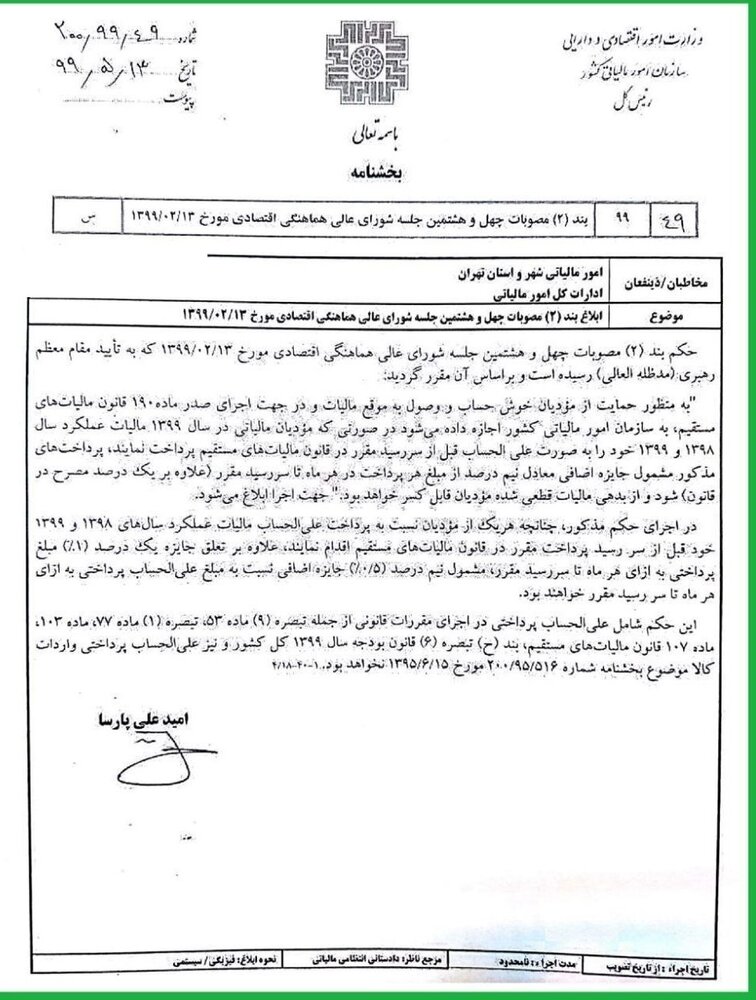 وزارت امور اقتصادی و دارایی
سازمان امور مالیاتی کشور
رئیس کل
شماره ۲۰۰/۹۹/۴۹
تاریخ ۹۹/۵/۱۳
پیوست
باسمه تعالی
بخشنامه
۴۹ ۹۹ بند (۲) مصوبات چهل و هشتمین جلسه شورای عالی هماهنگی اقتصادی مورخ ۱۳۹۹/۰۲/۱۳ س
مخاطبان/ذینفعان
امور مالیاتی شهر و استان تهران
ادارات کل امور مالیاتی
موضوع ابلاغ بند (۲) مصوبات چهل و هشتمین جلسه شورای عالی هماهنگی اقتصادی مورخ ۱۳۹۹/۰۲/۱۳
حکم بند (۲) مصوبات چهل و هشتمین جلسه شورای عالی هماهنگی اقتصادی مورخ ۱۳۹۹/۰۲/۱۳ که به تأیید مقام معظم
رهبری (مدظله العالی) رسیده است و براساس آن مقرر گردید:
"به منظور حمایت از مؤدیان خوش حساب و وصول به موقع مالیات و در جهت اجرای صدر ماده ۱۹۰ قانون مالیات‌های
مستقیم، به سازمان امور مالیاتی کشور اجازه داده می‌شود در صورتی که مؤدیان مالیاتی در سال ۱۳۹۹ مالیات عملکرد سال
۱۳۹۸ و ۱۳۹۹ خود را به صورت علی الحساب قبل از سررسید مقرر در قانون مالیات‌های مستقیم پرداخت نمایند، پرداخت‌های
مذکور مشمول جایزه اضافی معادل نیم درصد از مبلغ هر پرداخت در هر ماه تا سررسید مقرر (علاوه بر یک درصد مصرح در
قانون) شود و از بدهی مالیات قطعی شده مؤدیان قابل کسر خواهد بود." جهت اجرا ابلاغ می‌شود.
در اجرای حکم مذکور، چنانچه هریک از مؤدیان نسبت به پرداخت علی‌الحساب مالیات عملکرد سال‌های ۱۳۹۸ و ۱۳۹۹
خود قبل از سر رسید پرداخت مقرر در قانون مالیات‌های مستقیم اقدام نمایند، علاوه بر تعلق جایزه یک درصد (۱٪) مبلغ
پرداختی به ازای هر ماه تا سررسید مقرر، مشمول نیم درصد (۰/۵٪) جایزه اضافی نسبت به مبلغ علی‌الحساب پرداختی به ازای
هر ماه تا سر رسید مقرر خواهند بود.
این حکم شامل علی‌الحساب پرداختی در اجرای مقررات قانونی از جمله تبصره (۹) ماده ۵۳، تبصره (۱) ماده ۷۷، ماده ۱۰۳،
ماده ۱۰۷ قانون مالیات‌های مستقیم، بند (ح) تبصره (۶) قانون بودجه سال ۱۳۹۹ کل کشور و نیز علی‌الحساب پرداختی واردات
کالا موضوع بخشنامه شماره ۲۰۰/۹۵/۵۱۶ مورخ ۱۳۹۵/۶/۱۵ نخواهد بود. ۴/۱۸-۴۰-۱
امید علی پارسا
تاریخ اجراء: از تاریخ تصویب مدت اجراء: نامحدود مرجع ناظر: دادستانی انتظامی مالیاتی نحوه ابلاغ: فیزیکی/سیستمی